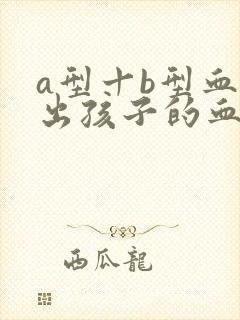 a型十b型血
出孩子的血
西瓜龍